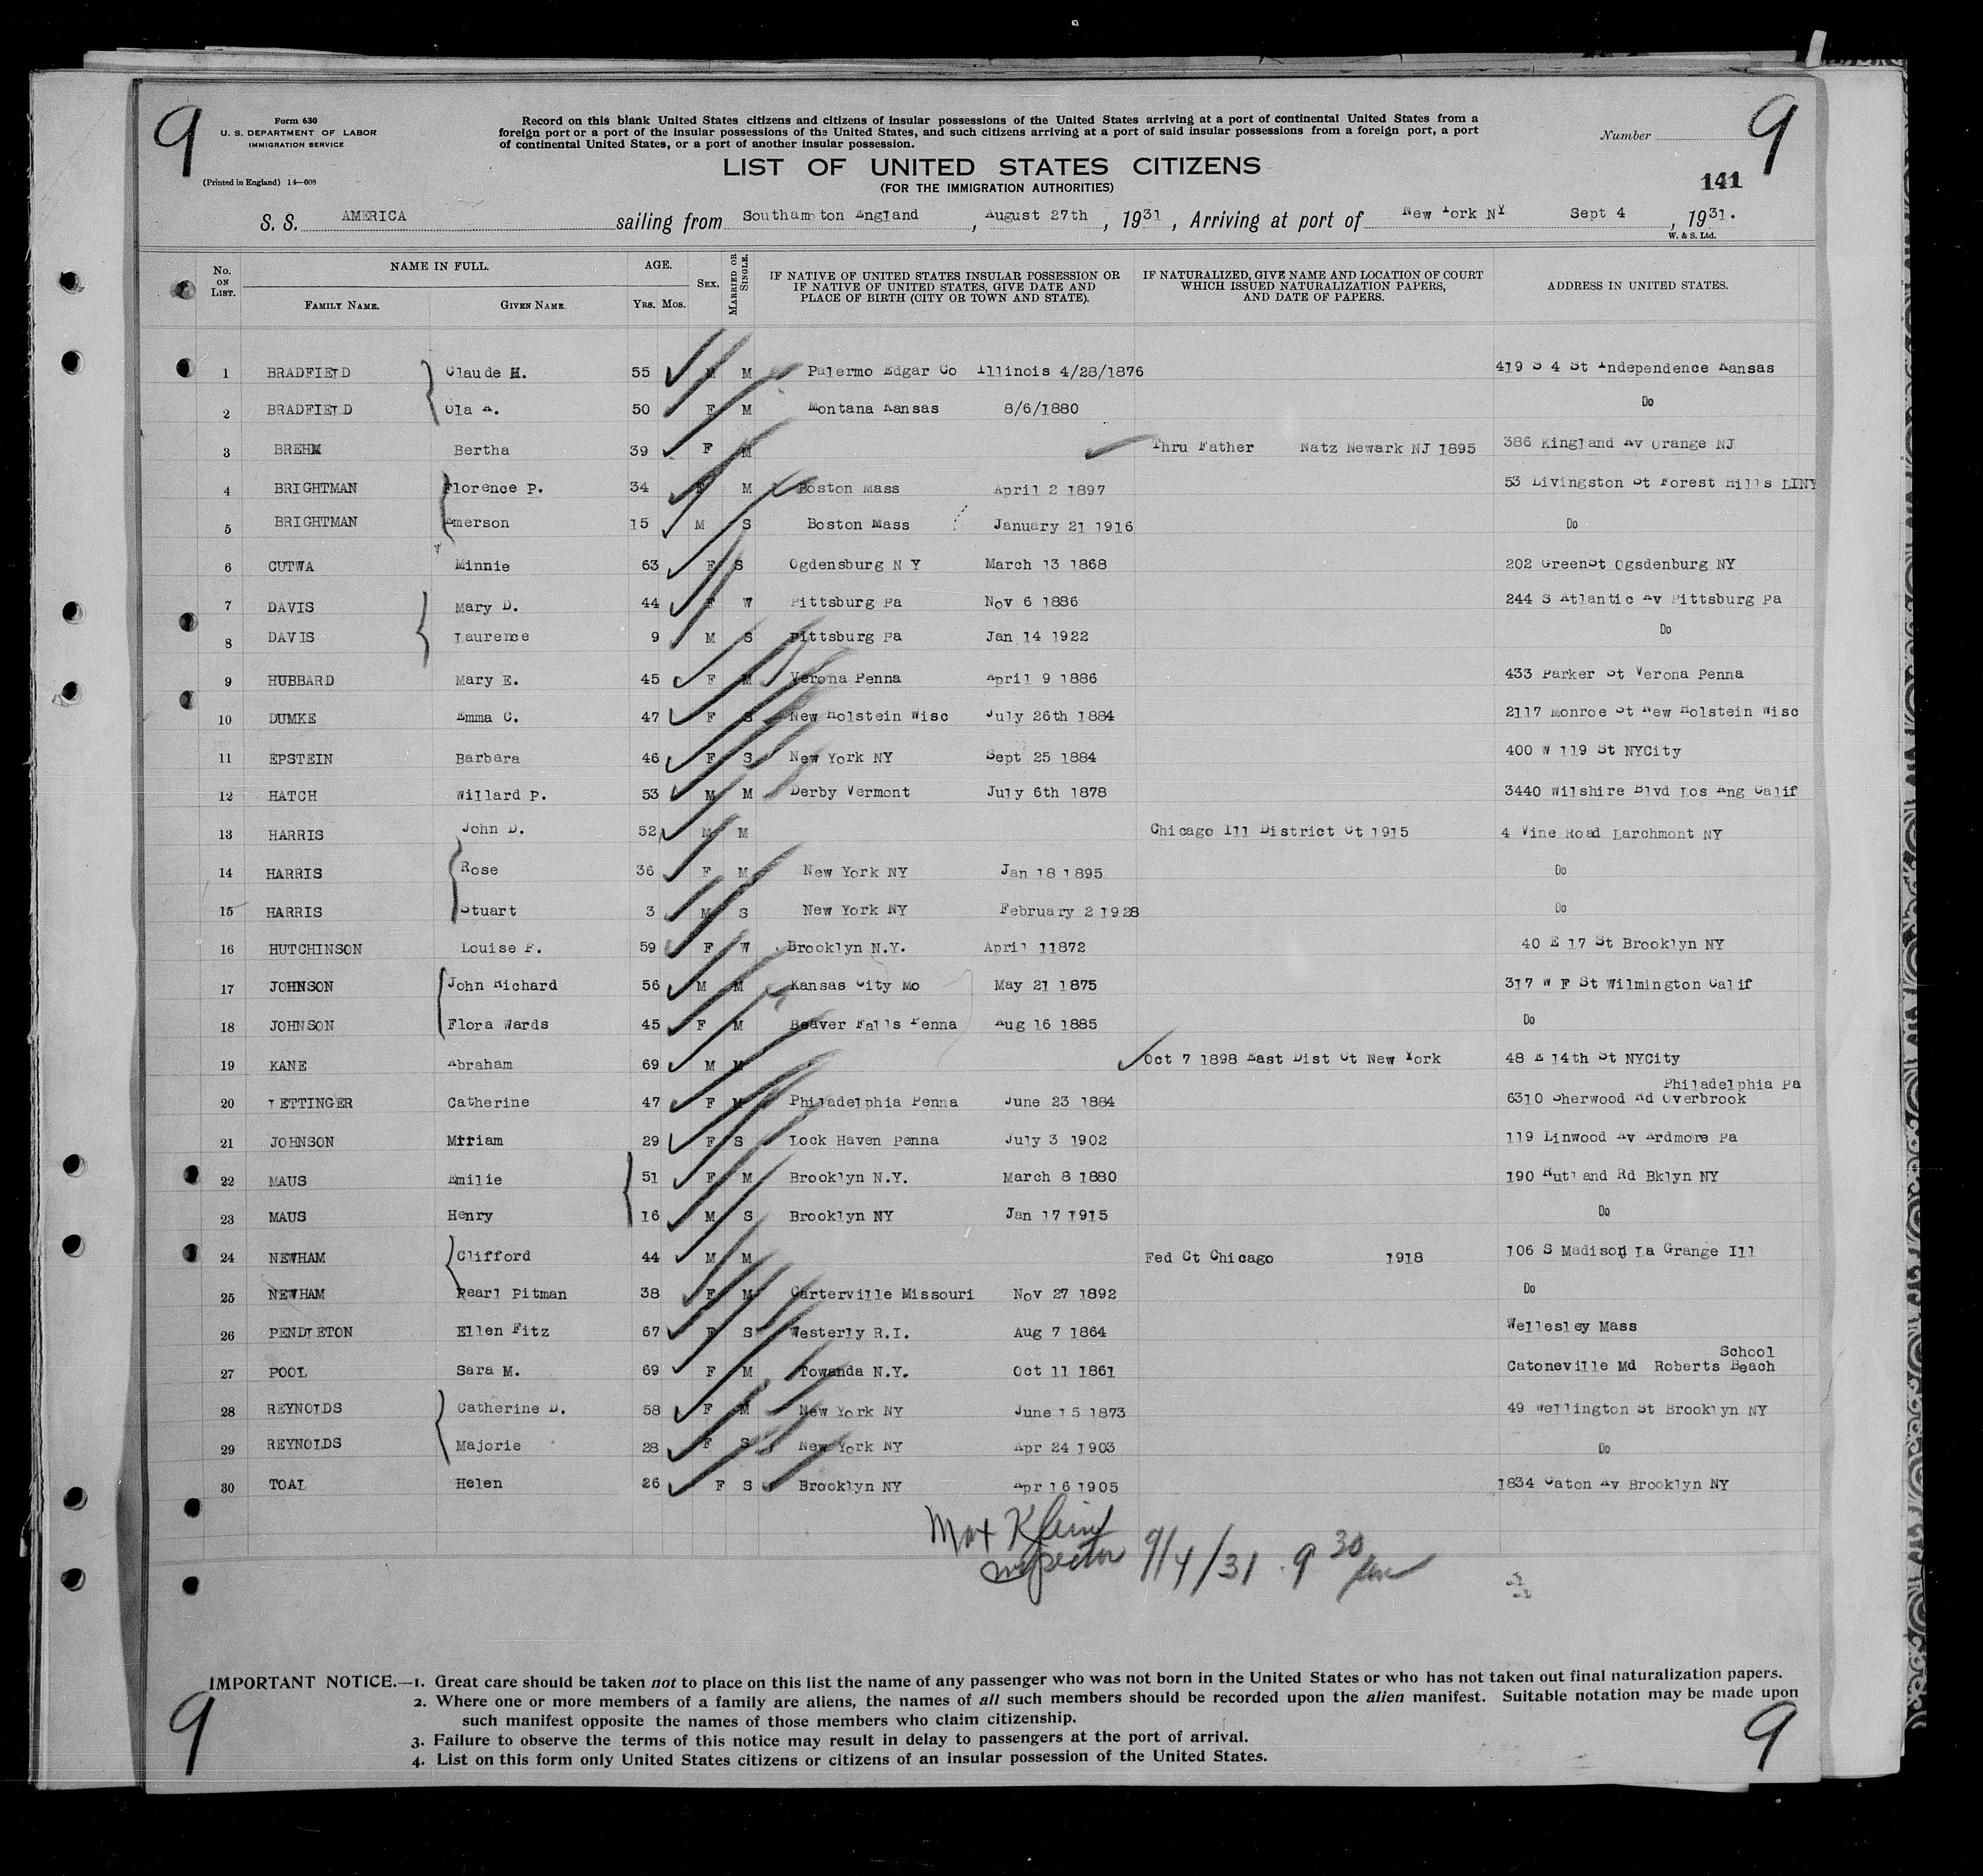 9
9
Form 630
U. S. DEPARTMENT OF LABOR
IMMIGRATION SERVICE
(Printed in England) 14—608
Record on this blank United States citizens and citizens of insular possessions of the United States arriving at a port of continental United States from a
foreign port or a port of the insular possessions of the United States, and such citizens arriving at a port of said insular possessions from a foreign port, a port
of continental United States, or a port of another insular possession.
Number
LIST OF UNITED STATES CITIZENS
(FOR THE IMMIGRATION AUTHORITIES)
141
S. S. AMERICA sailing from Southampton England, August 27th, 1931, Arriving at port of New York NY Sept 4, 1931.
W. & S. Ltd.
No. ON LIST. NAME IN FULL. FAMILY NAME. GIVEN NAME. AGE. YRS. MOS. SEX. MARRIED OR SINGLE. IF NATIVE OF UNITED STATES INSULAR POSSESSION OR IF NATIVE OF UNITED STATES, GIVE DATE AND PLACE OF BIRTH (CITY OR TOWN AND STATE). IF NATURALIZED, GIVE NAME AND LOCATION OF COURT WHICH ISSUED NATURALIZATION PAPERS, AND DATE OF PAPERS. ADDRESS IN UNITED STATES.
1 BRADFIELD Claude H. 55 M M Palermo Edgar Co Illinois 4/28/1876 419 S 4 St Independence Kansas
2 BRADFIELD Ola A. 50 F M Montana Kansas 8/6/1880 Do
3 BREHM Bertha 39 F M Thru Father Natz Newark NJ 1895 386 Kingland Av Orange NJ
4 BRIGHTMAN Florence P. 34 F M Boston Mass April 2 1897 53 Livingston St Forest Hills LINY
5 BRIGHTMAN Emerson 15 M S Boston Mass January 21 1916 Do
6 CUTWA Minnie 63 F S Ogdensburg N Y March 13 1868 202 GreenSt Ogsdenburg NY
7 DAVIS Mary D. 44 F W Pittsburg Pa Nov 6 1886 244 S Atlantic Av Pittsburg Pa
8 DAVIS Laurence 9 M S Pittsburg Pa Jan 14 1922 Do
9 HUBBARD Mary E. 45 F M Verona Penna April 9 1886 433 Parker St Verona Penna
10 DUMKE Emma C. 47 F S New Holstein Wisc July 26th 1884 2117 Monroe St New Holstein Wisc
11 EPSTEIN Barbara 46 F S New York NY Sept 25 1884 400 W 119 St NYCity
12 HATCH Willard P. 53 M M Derby Vermont July 6th 1878 3440 Wilshire Blvd Los Ang Calif
13 HARRIS John D. 52 M M Chicago Ill District Ct 1915 4 Vine Road Larchmont NY
14 HARRIS Rose 36 F M New York NY Jan 18 1895 Do
15 HARRIS Stuart 3 M S New York NY February 2 1928 Do
16 HUTCHINSON Louise F. 59 F W Brooklyn N.Y. April 11872 40 E 17 St Brooklyn NY
17 JOHNSON John Richard 56 M M Kansas City Mo May 21 1875 317 W F St Wilmington Calif
18 JOHNSON Flora Wards 45 F M Beaver Falls Penna Aug 16 1885 Do
19 KANE Abraham 69 M M Oct 7 1898 East Dist Ct New York 48 E 14th St NYCity
Philadelphia Pa
20 LETTINGER Catherine 47 F M Philadelphia Penna June 23 1884 6310 Sherwood Rd Overbrook
21 JOHNSON Miriam 29 F S Lock Haven Penna July 3 1902 119 Linwood Av Ardmore Pa
22 MAUS Emilie 51 F M Brooklyn N.Y. March 8 1880 190 Rutland Rd Bklyn NY
23 MAUS Henry 16 M S Brooklyn NY Jan 17 1915 Do
24 NEWHAM Clifford 44 M M Fed Ct Chicago 1918 106 S Madison La Grange Ill
25 NEWHAM Pearl Pitman 38 F M Carterville Missouri Nov 27 1892 Do
26 PENDLETON Ellen Fitz 67 F S Westerly R.I. Aug 7 1864 Wellesley Mass
School
27 POOL Sara M. 69 F M Towanda N.Y. Oct 11 1861 Catoneville Md Roberts Beach
28 REYNOLDS Catherine D. 58 F M New York NY June 15 1873 49 Wellington St Brooklyn NY
29 REYNOLDS Majorie 28 F S New York NY Apr 24 1903 Do
30 TOAL Helen 26 F S Brooklyn NY Apr 16 1905 1834 Caton Av Brooklyn NY
Max Klein
Inspector 9/4/31 9 30
IMPORTANT NOTICE.—1. Great care should be taken not to place on this list the name of any passenger who was not born in the United States or who has not taken out final naturalization papers.
2. Where one or more members of a family are aliens, the names of all such members should be recorded upon the alien manifest. Suitable notation may be made upon
such manifest opposite the names of those members who claim citizenship.
3. Failure to observe the terms of this notice may result in delay to passengers at the port of arrival.
4. List on this form only United States citizens or citizens of an insular possession of the United States.
9
9